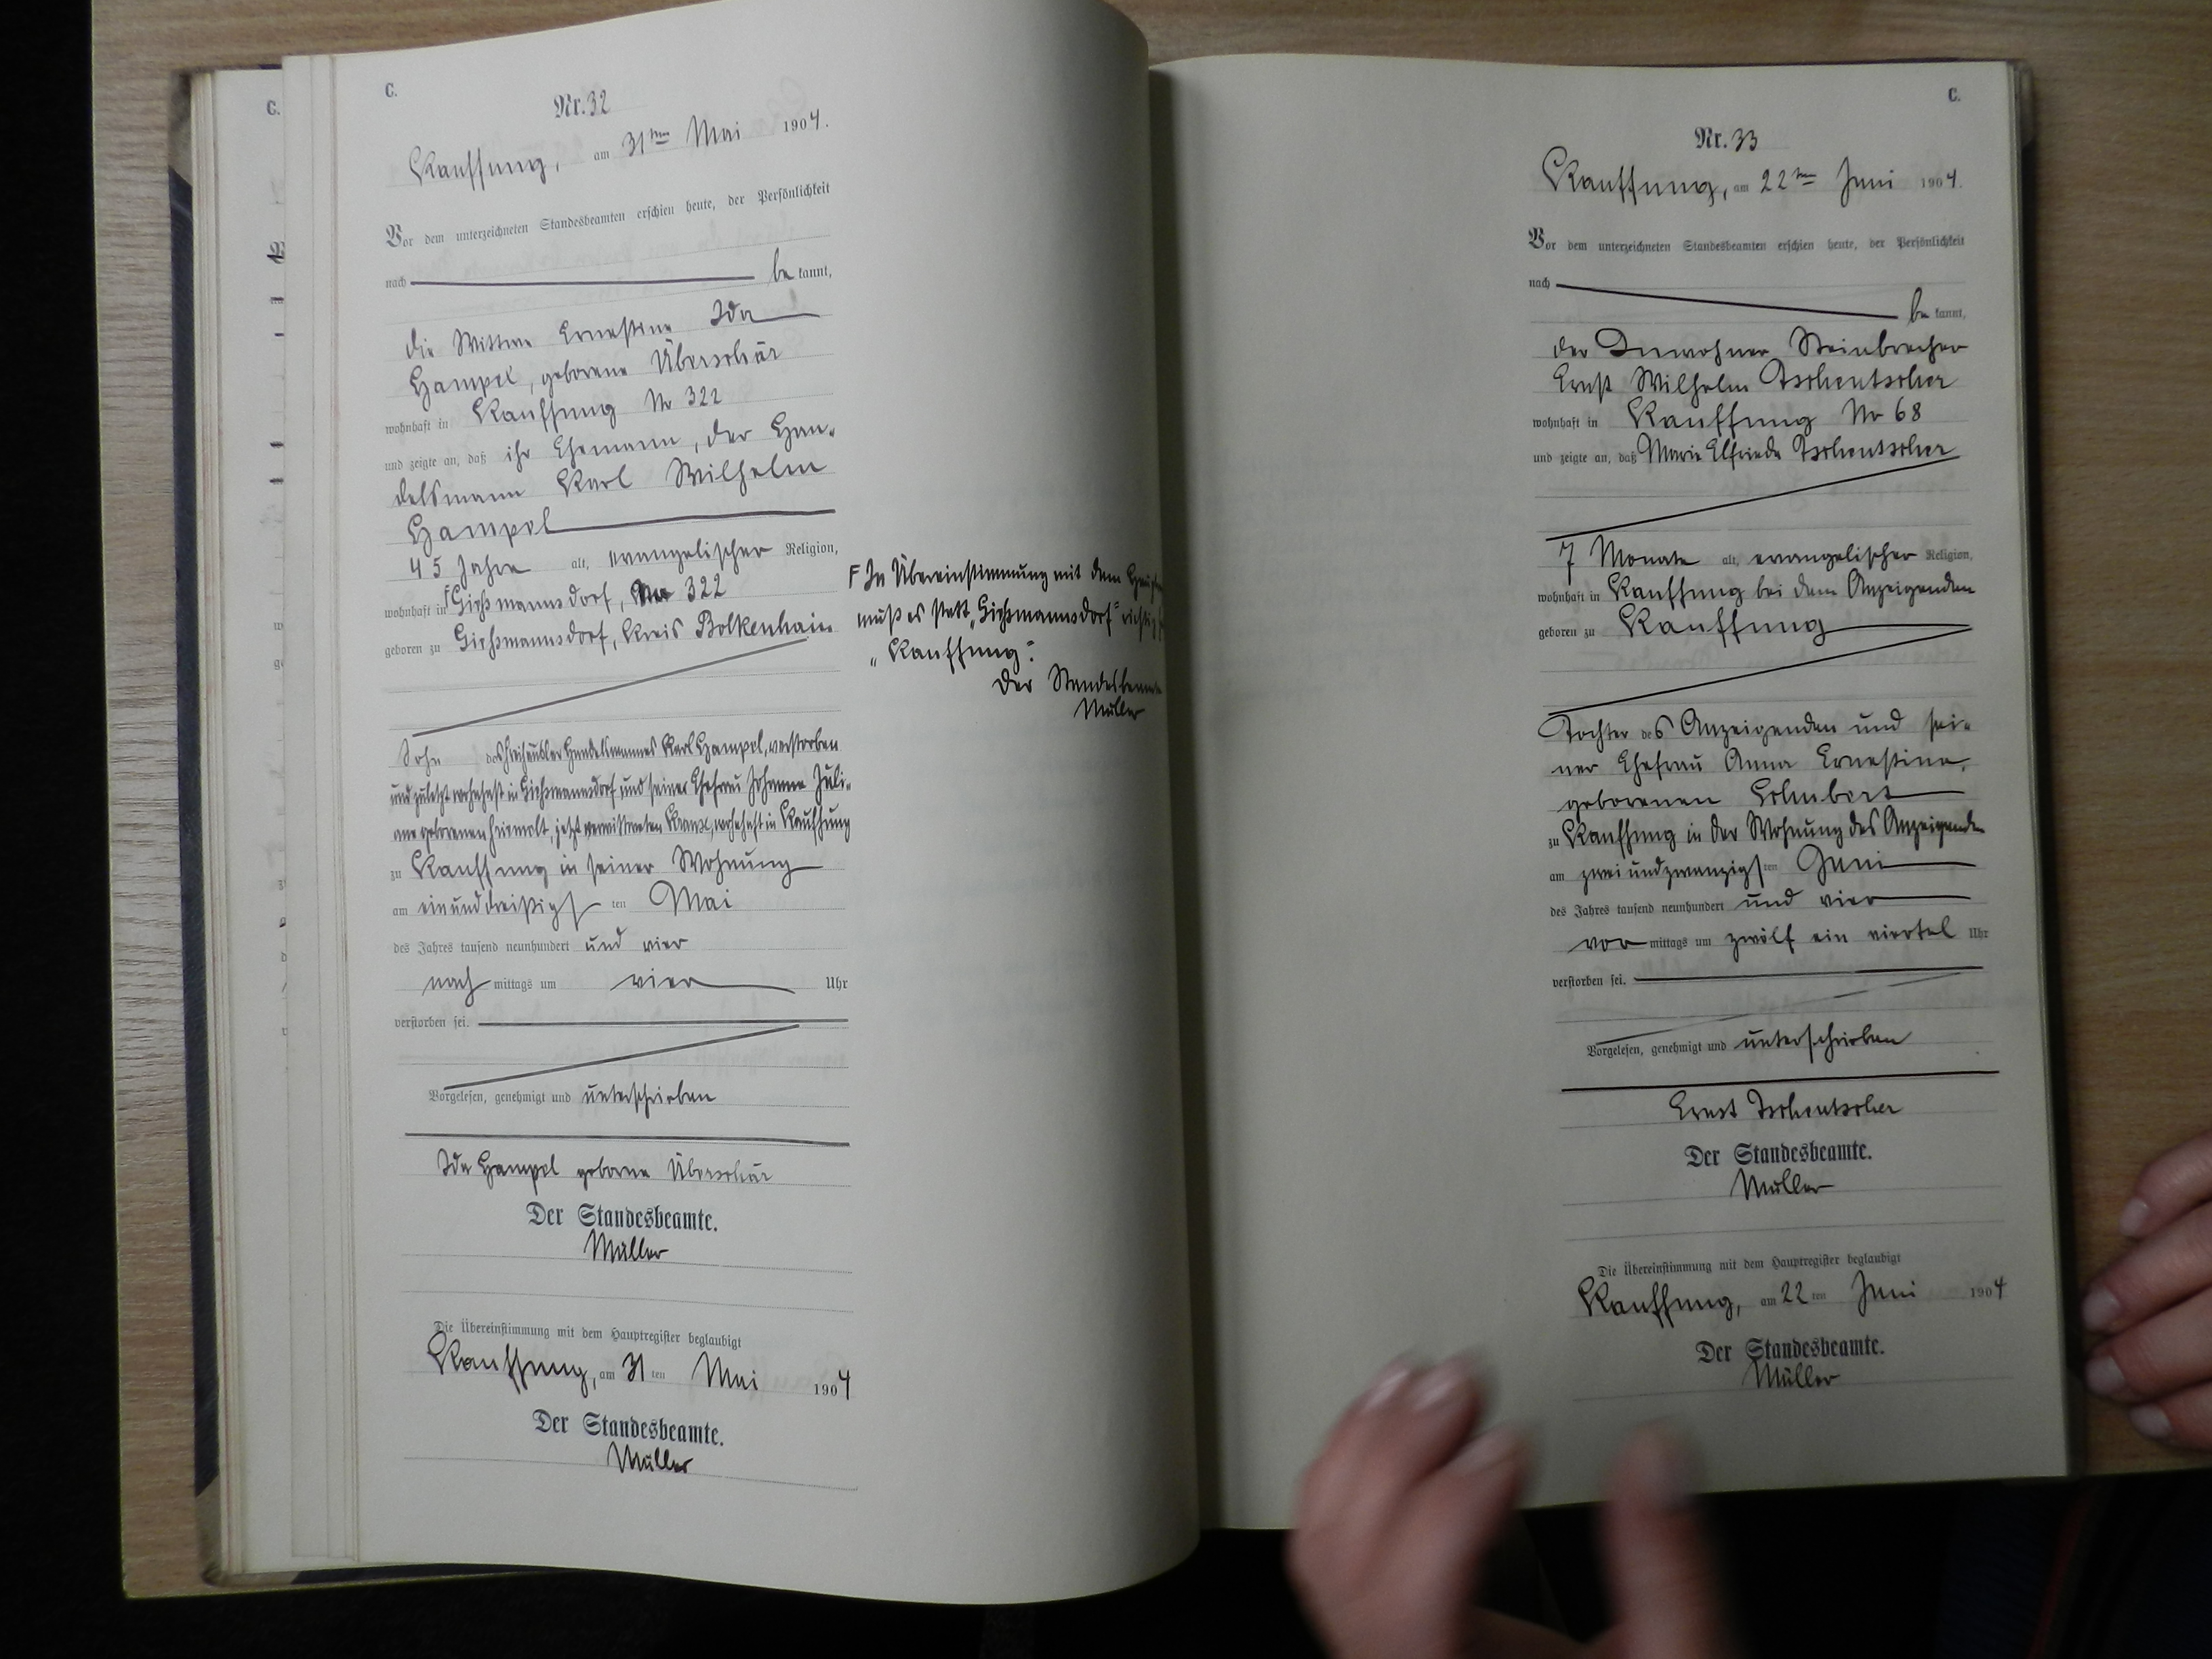 C.
Nr. 32
Kauffung, am 31ten Mai 1904.
Vor dem unterzeichneten Standesbeamten erschien heute, der Persönlichkeit
nach be kannt,
die Wittwe Ernestine Ida
Hampel, geborene Überschär
wohnhaft in Kauffung No 322
und zeigte an, daß ihr Ehemann, der Han-
delsmann Karl Wilhelm
Hampel
45 Jahre alt, evangelischer Religion,
wohnhaft in Gießmannsdorf, No 322
geboren zu Gießmannsdorf, Kreis Bolkenhain
Sohn des Freihäusler Handelsmannes Karl Hampel, verstorben
und zuletzt wohnhaft in Gießmannsdorf und seiner Ehefrau Johanne Juli-
ane geborenen jetzt verwittweten wohnhaft in Kauffung
zu Kauffung in seiner Wohnung
am einunddreißigsten Mai
des Jahres tausend neunhundert und vier
nach mittags um vier Uhr
verstorben sei.
Vorgelesen, genehmigt und unterschrieben
Ida Hampel geborne Überschär
Der Standesbeamte.
Müller
Die Übereinstimmung mit dem Hauptregister beglaubigt
Kauffung, am 31 ten Mai 1904
Der Standesbeamte.
Müller
F In Übereinstimmung mit dem
muß es statt „Gießmannsdorf" richtig
„Kauffung".
Der Standesbeamte
Müller
C.
Nr. 33
Kauffung, am 22ten Juni 1904.
Vor dem unterzeichneten Standesbeamten erschien heute, der Persönlichkeit
nach be kannt,
der Inwohner Steinbrecher
Ernst Wilhelm Tschentscher
wohnhaft in Kauffung No 68
und zeigte an, daß Marie Elfriede Tschentscher
7 Monate alt, evangelischer Religion,
wohnhaft in Kauffung bei dem Anzeigenden
geboren zu Kauffung
Tochter des Anzeigenden und sei-
ner Ehefrau Anna Ernestine,
geborenen Schubert
zu Kauffung in der Wohnung des Anzeigenden
am zweiundzwanzigsten Juni
des Jahres tausend neunhundert und vier
vor mittags um zwölf ein viertel Uhr
verstorben sei.
Vorgelesen, genehmigt und unterschrieben
Ernst Tschentscher
Der Standesbeamte.
Müller
Die Übereinstimmung mit dem Hauptregister beglaubigt
Kauffung, am 22 ten Juni 1904
Der Standesbeamte.
Müller